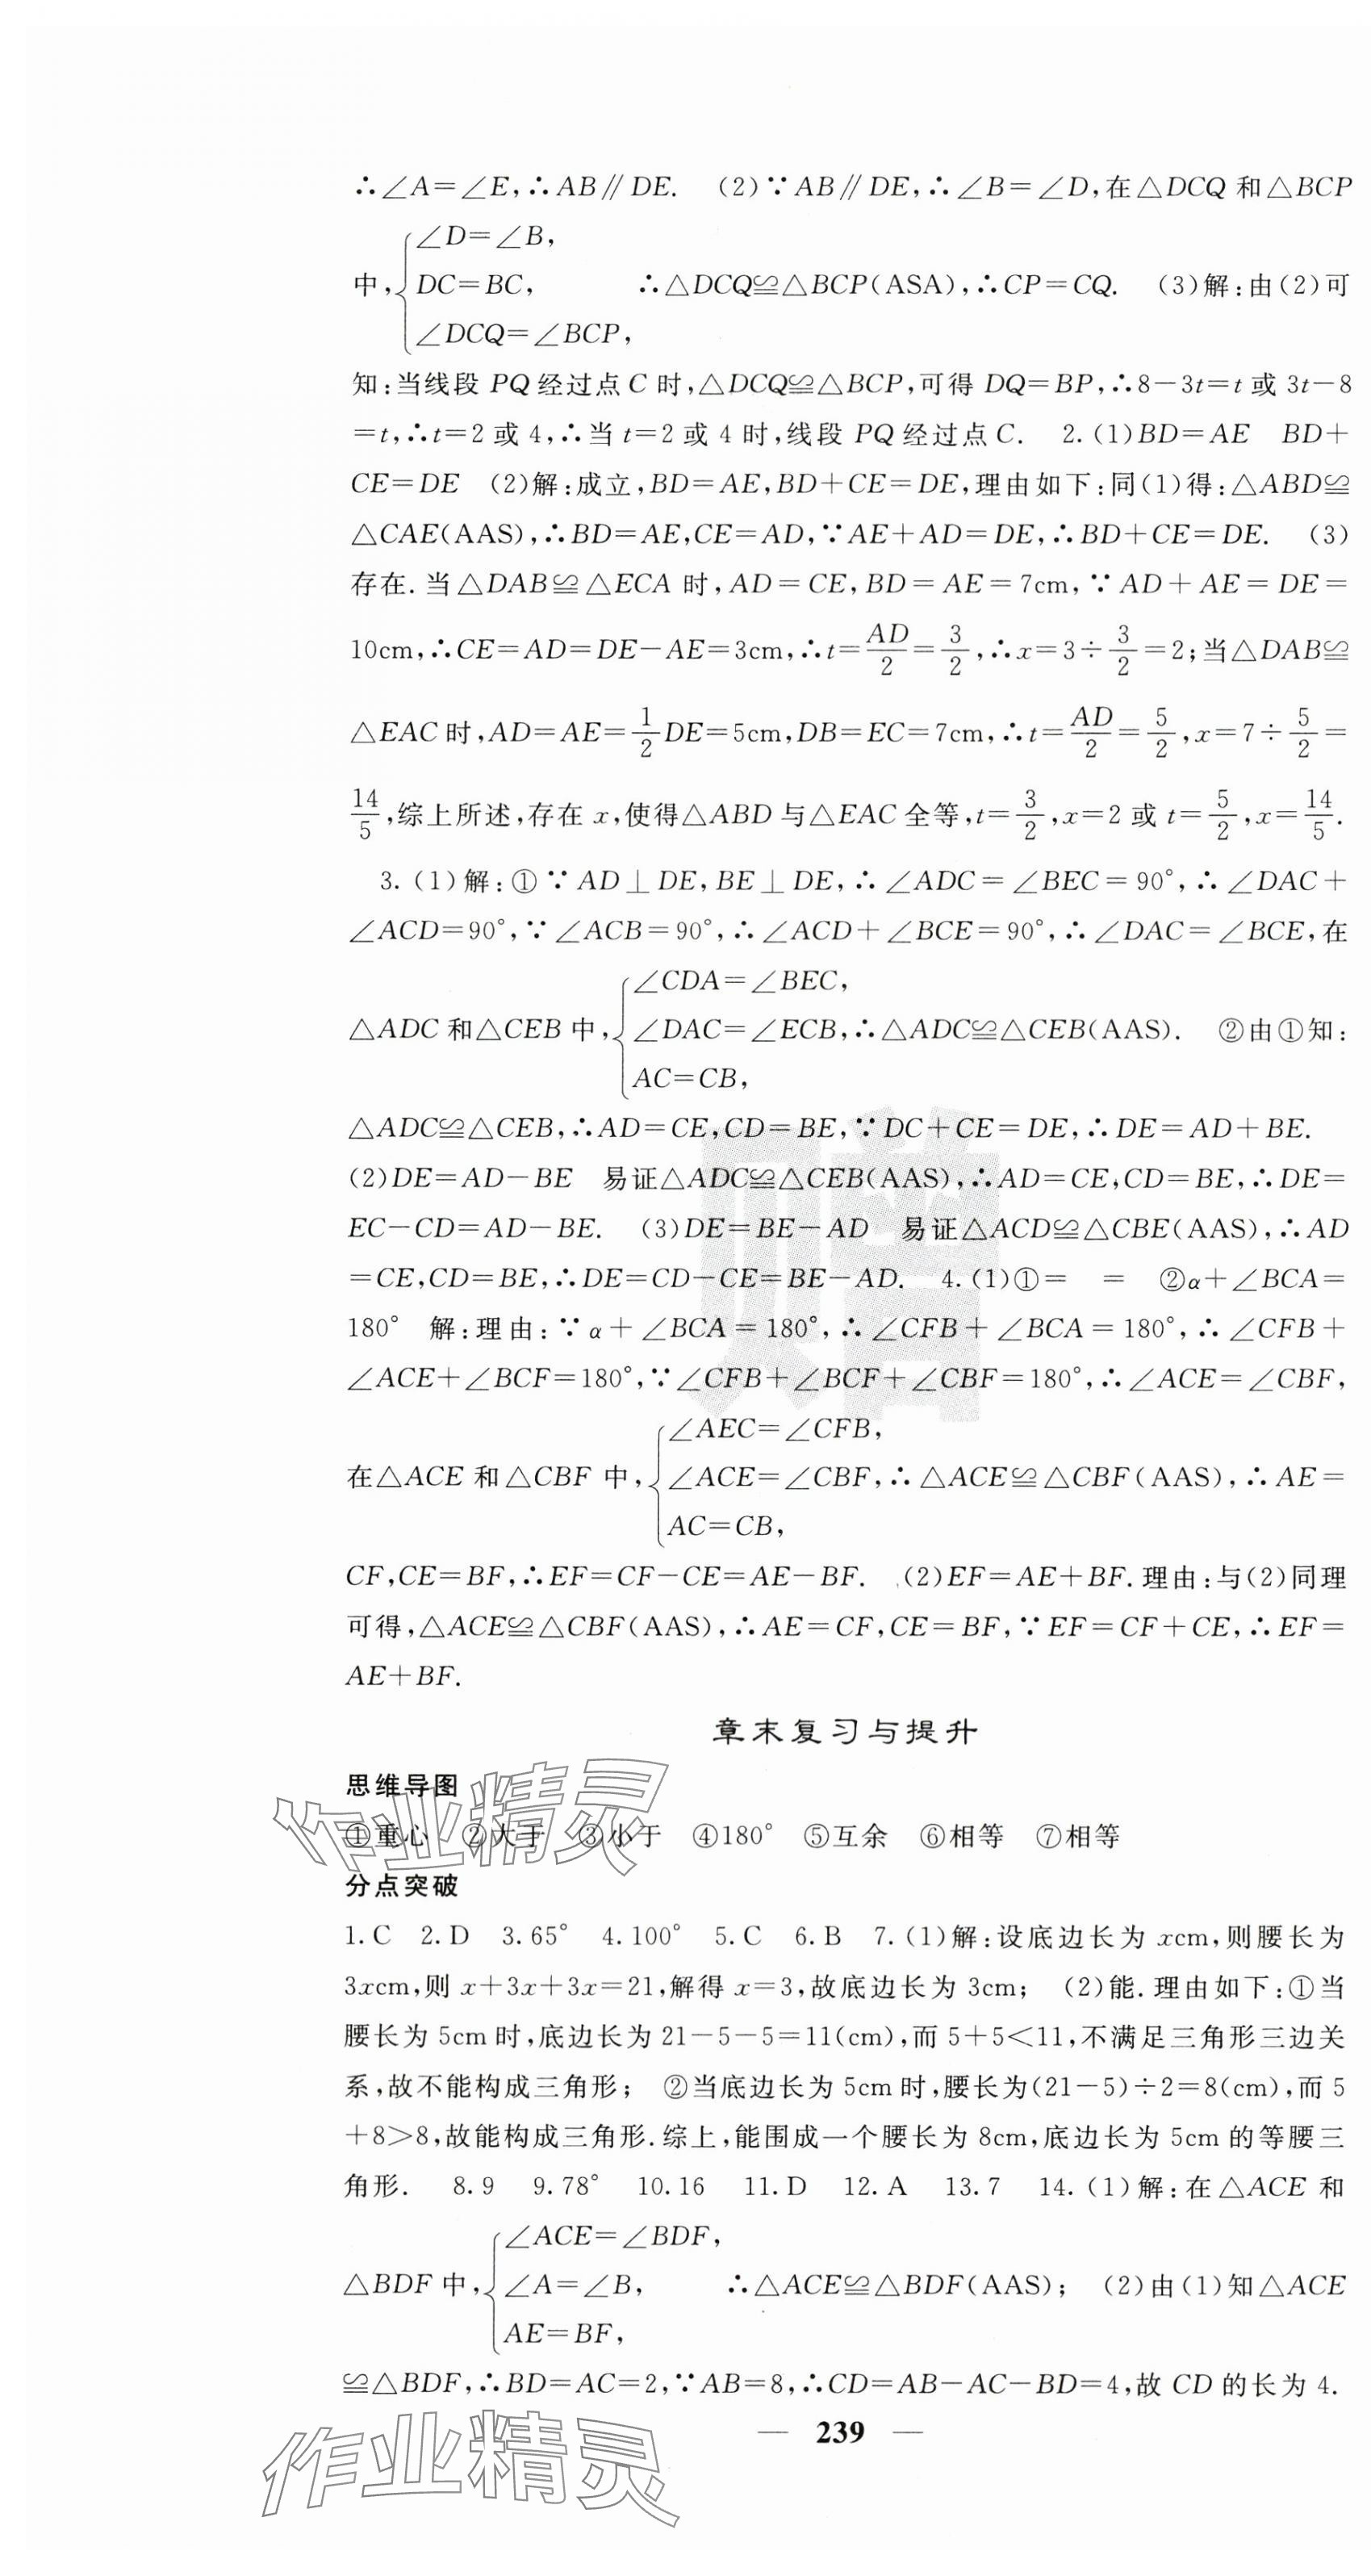 ∴∠A=∠E,∴AB∥DE. (2)∵AB∥DE,∴∠B=∠D,在△DCQ和△BCP
∠D=∠B,
中,{DC=BC, ∴△DCQ≌△BCP(ASA),∴CP=CQ. (3)解:由(2)可
∠DCQ=∠BCP,
知:当线段PQ经过点C时,△DCQ≌△BCP,可得DQ=BP,∴8-3t=t或3t-8
=t,∴t=2或4,∴当t=2或4时,线段PQ经过点C. 2.(1)BD=AE BD+
CE=DE (2)解:成立,BD=AE,BD+CE=DE,理由如下:同(1)得:△ABD≌
△CAE(AAS),∴BD=AE,CE=AD,∵AE+AD=DE,∴BD+CE=DE. (3)
存在.当△DAB≌△ECA时,AD=CE,BD=AE=7cm,∵AD+AE=DE=
10cm,∴CE=AD=DE-AE=3cm,∴t=AD/2=3/2,∴x=3÷3/2=2;当△DAB≌
△EAC时,AD=AE=1/2DE=5cm,DB=EC=7cm,∴t=AD/2=5/2,x=7÷5/2=
14/5,综上所述,存在x,使得△ABD与△EAC全等,t=3/2,x=2或t=5/2,x=14/5.
3.(1)解:①∵AD⊥DE,BE⊥DE,∴∠ADC=∠BEC=90°,∴∠DAC+
∠ACD=90°,∵∠ACB=90°,∴∠ACD+∠BCE=90°,∴∠DAC=∠BCE,在
∠CDA=∠BEC,
△ADC和△CEB中,{∠DAC=∠ECB,∴△ADC≌△CEB(AAS). ②由①知:
AC=CB,
△ADC≌△CEB,∴AD=CE,CD=BE,∵DC+CE=DE,∴DE=AD+BE.
(2)DE=AD-BE 易证△ADC≌△CEB(AAS),∴AD=CE,CD=BE,∴DE=
EC-CD=AD-BE. (3)DE=BE-AD 易证△ACD≌△CBE(AAS),∴AD
=CE,CD=BE,∴DE=CD-CE=BE-AD. 4.(1)①= = ②α+∠BCA=
180° 解:理由:∵α+∠BCA=180°,∴∠CFB+∠BCA=180°,∴∠CFB+
∠ACE+∠BCF=180°,∵∠CFB+∠BCF+∠CBF=180°,∴∠ACE=∠CBF,
∠AEC=∠CFB,
在△ACE和△CBF中,{∠ACE=∠CBF,∴△ACE≌△CBF(AAS),∴AE=
AC=CB,
CF,CE=BF,∴EF=CF-CE=AE-BF. (2)EF=AE+BF.理由:与(2)同理
可得,△ACE≌△CBF(AAS),∴AE=CF,CE=BF,∵EF=CF+CE,∴EF=
AE+BF.
章末复习与提升
思维导图
①重心 ②大于 ③小于 ④180° ⑤互余 ⑥相等 ⑦相等
分点突破
1.C 2.D 3.65° 4.100° 5.C 6.B 7.(1)解:设底边长为xcm,则腰长为
3xcm,则x+3x+3x=21,解得x=3,故底边长为3cm; (2)能.理由如下:①当
腰长为5cm时,底边长为21-5-5=11(cm),而5+5<11,不满足三角形三边关
系,故不能构成三角形; ②当底边长为5cm时,腰长为(21-5)÷2=8(cm),而5
+8>8,故能构成三角形.综上,能围成一个腰长为8cm,底边长为5cm的等腰三
角形. 8.9 9.78° 10.16 11.D 12.A 13.7 14.(1)解:在△ACE和
∠ACE=∠BDF,
△BDF中,{∠A=∠B, ∴△ACE≌△BDF(AAS); (2)由(1)知△ACE
AE=BF,
≌△BDF,∴BD=AC=2,∵AB=8,∴CD=AB-AC-BD=4,故CD的长为4.
— 239 —
赠
作业精灵
作业精灵